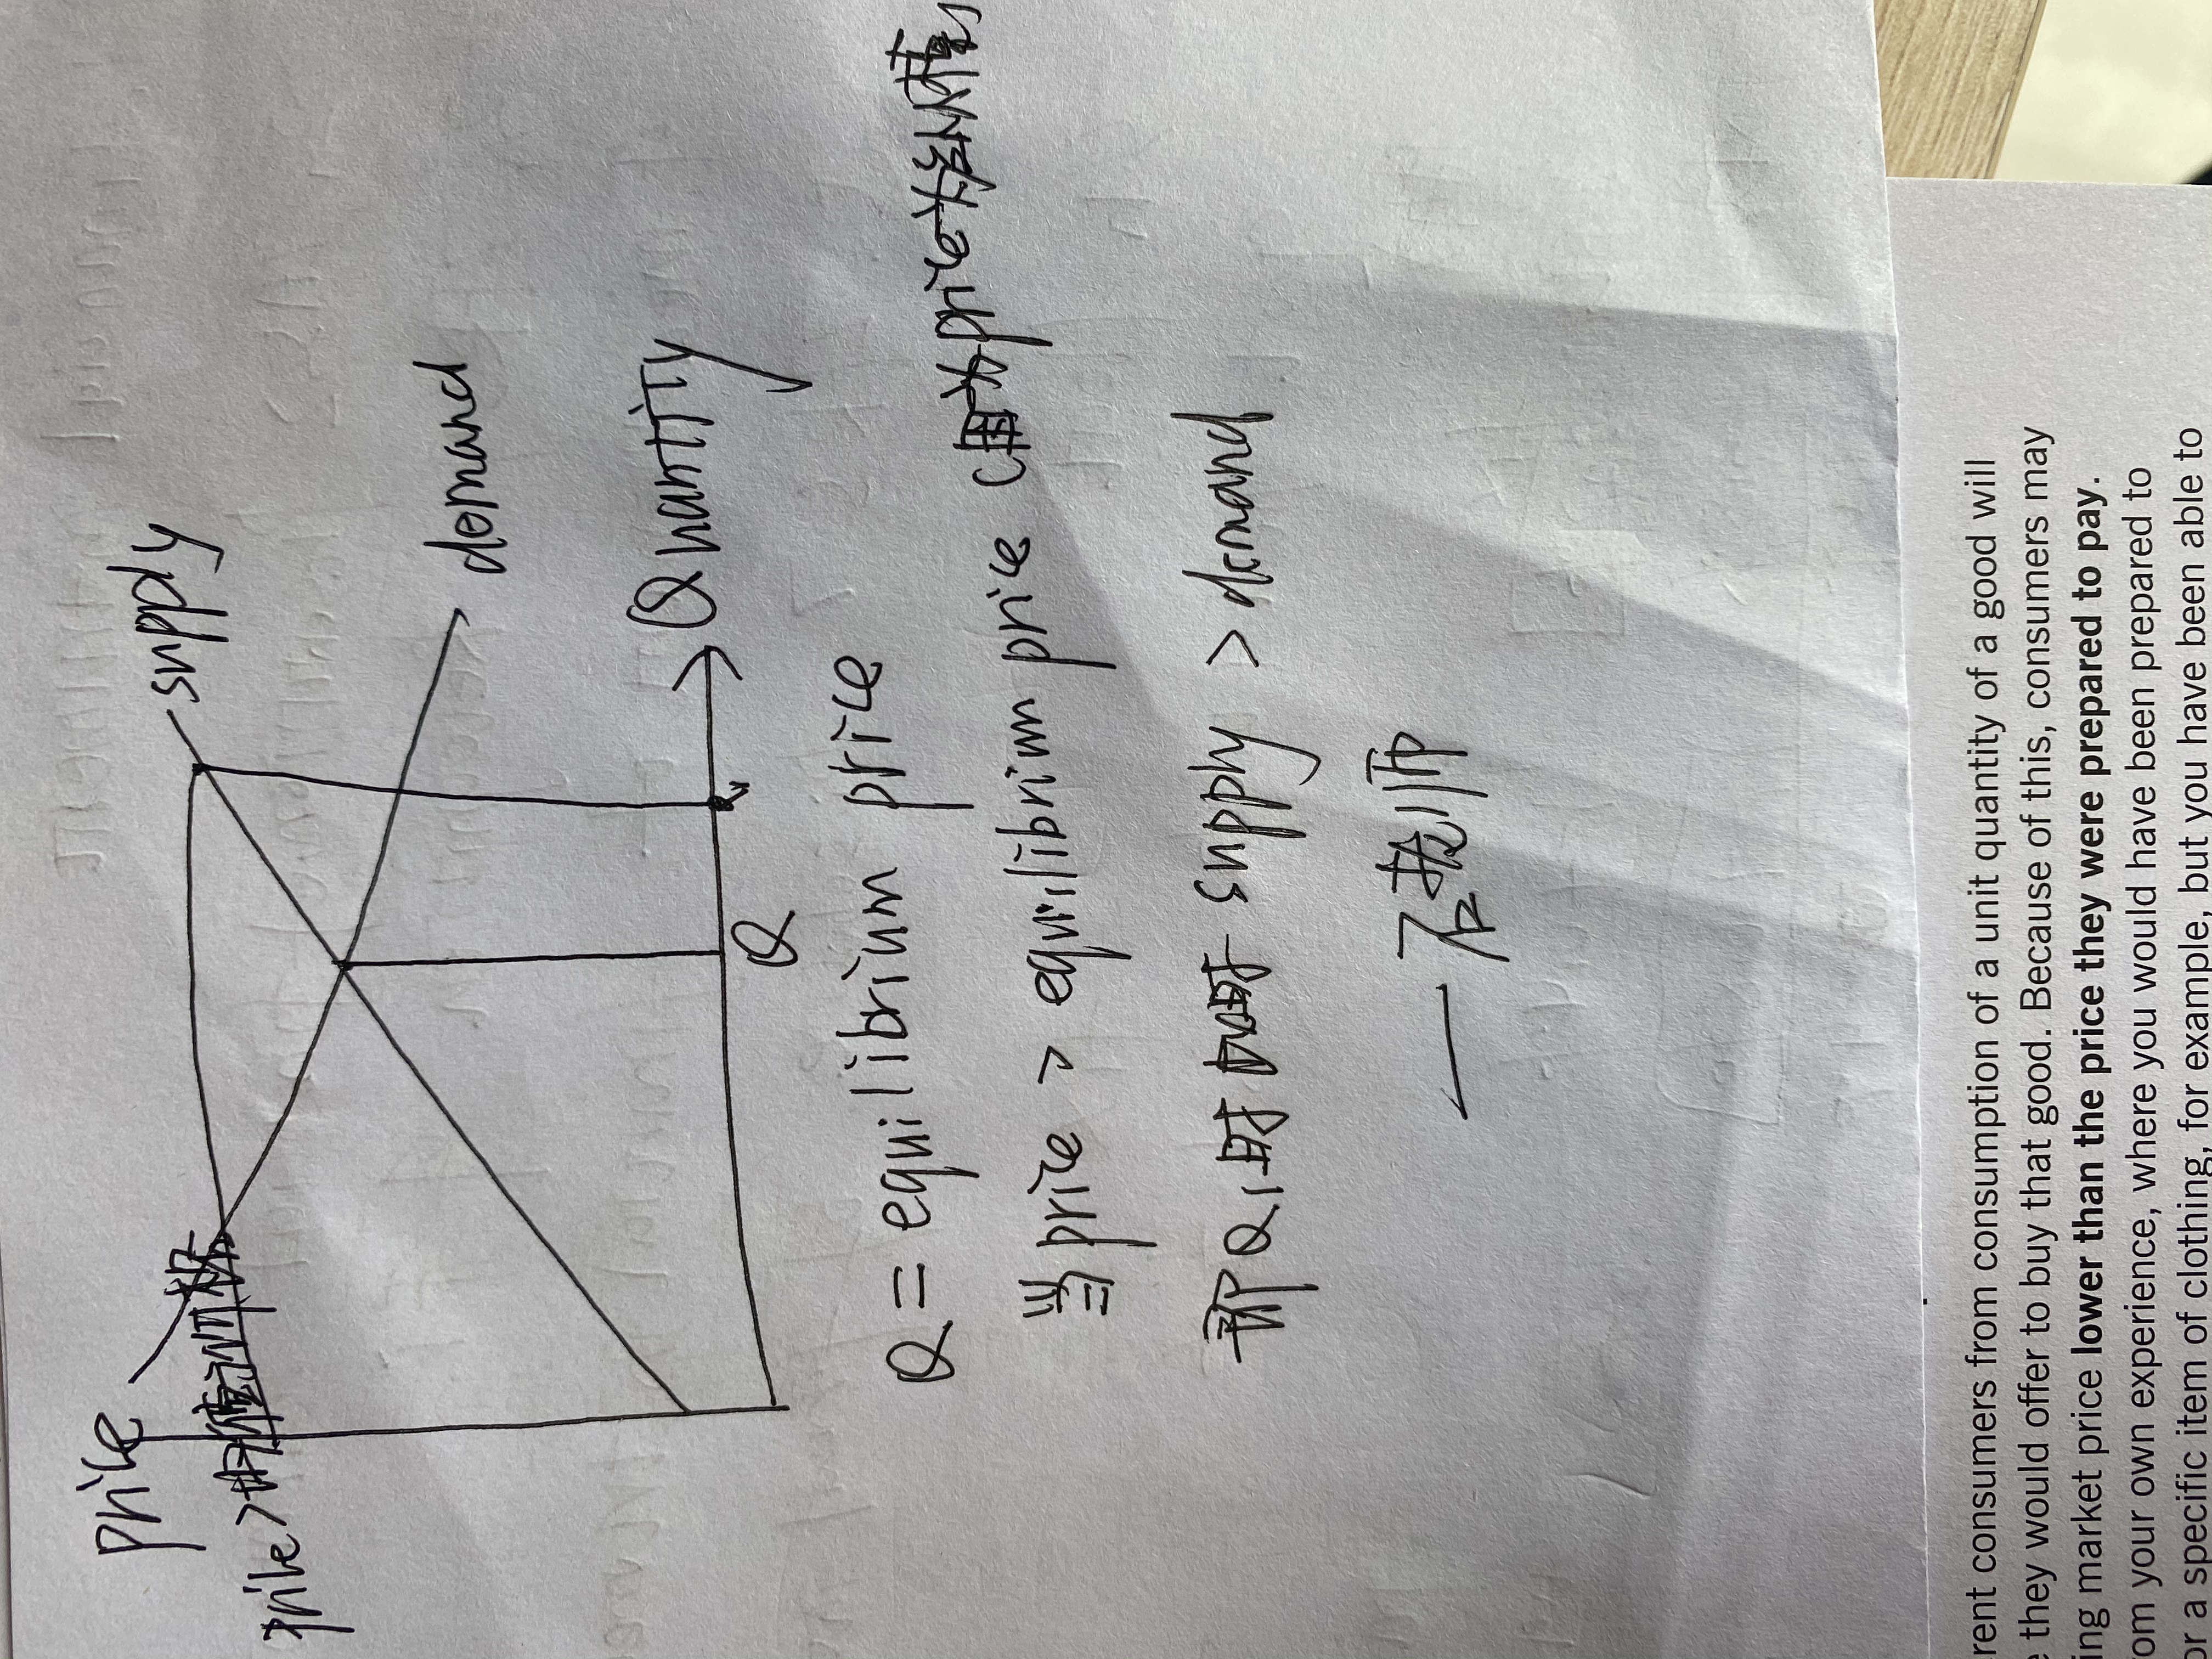 price
supply
price >
demand
Quantity
Q
Q = equilibrium price
当 price > equrilibrium price (因为price太
那 Q1时 supply > demand
— 左老师
rent consumers from consumption of a unit quantity of a good will
e they would offer to buy that good. Because of this, consumers may
ing market price lower than the price they were prepared to pay.
om your own experience, where you would have been prepared to
or a specific item of clothing, for example, but you have been able to